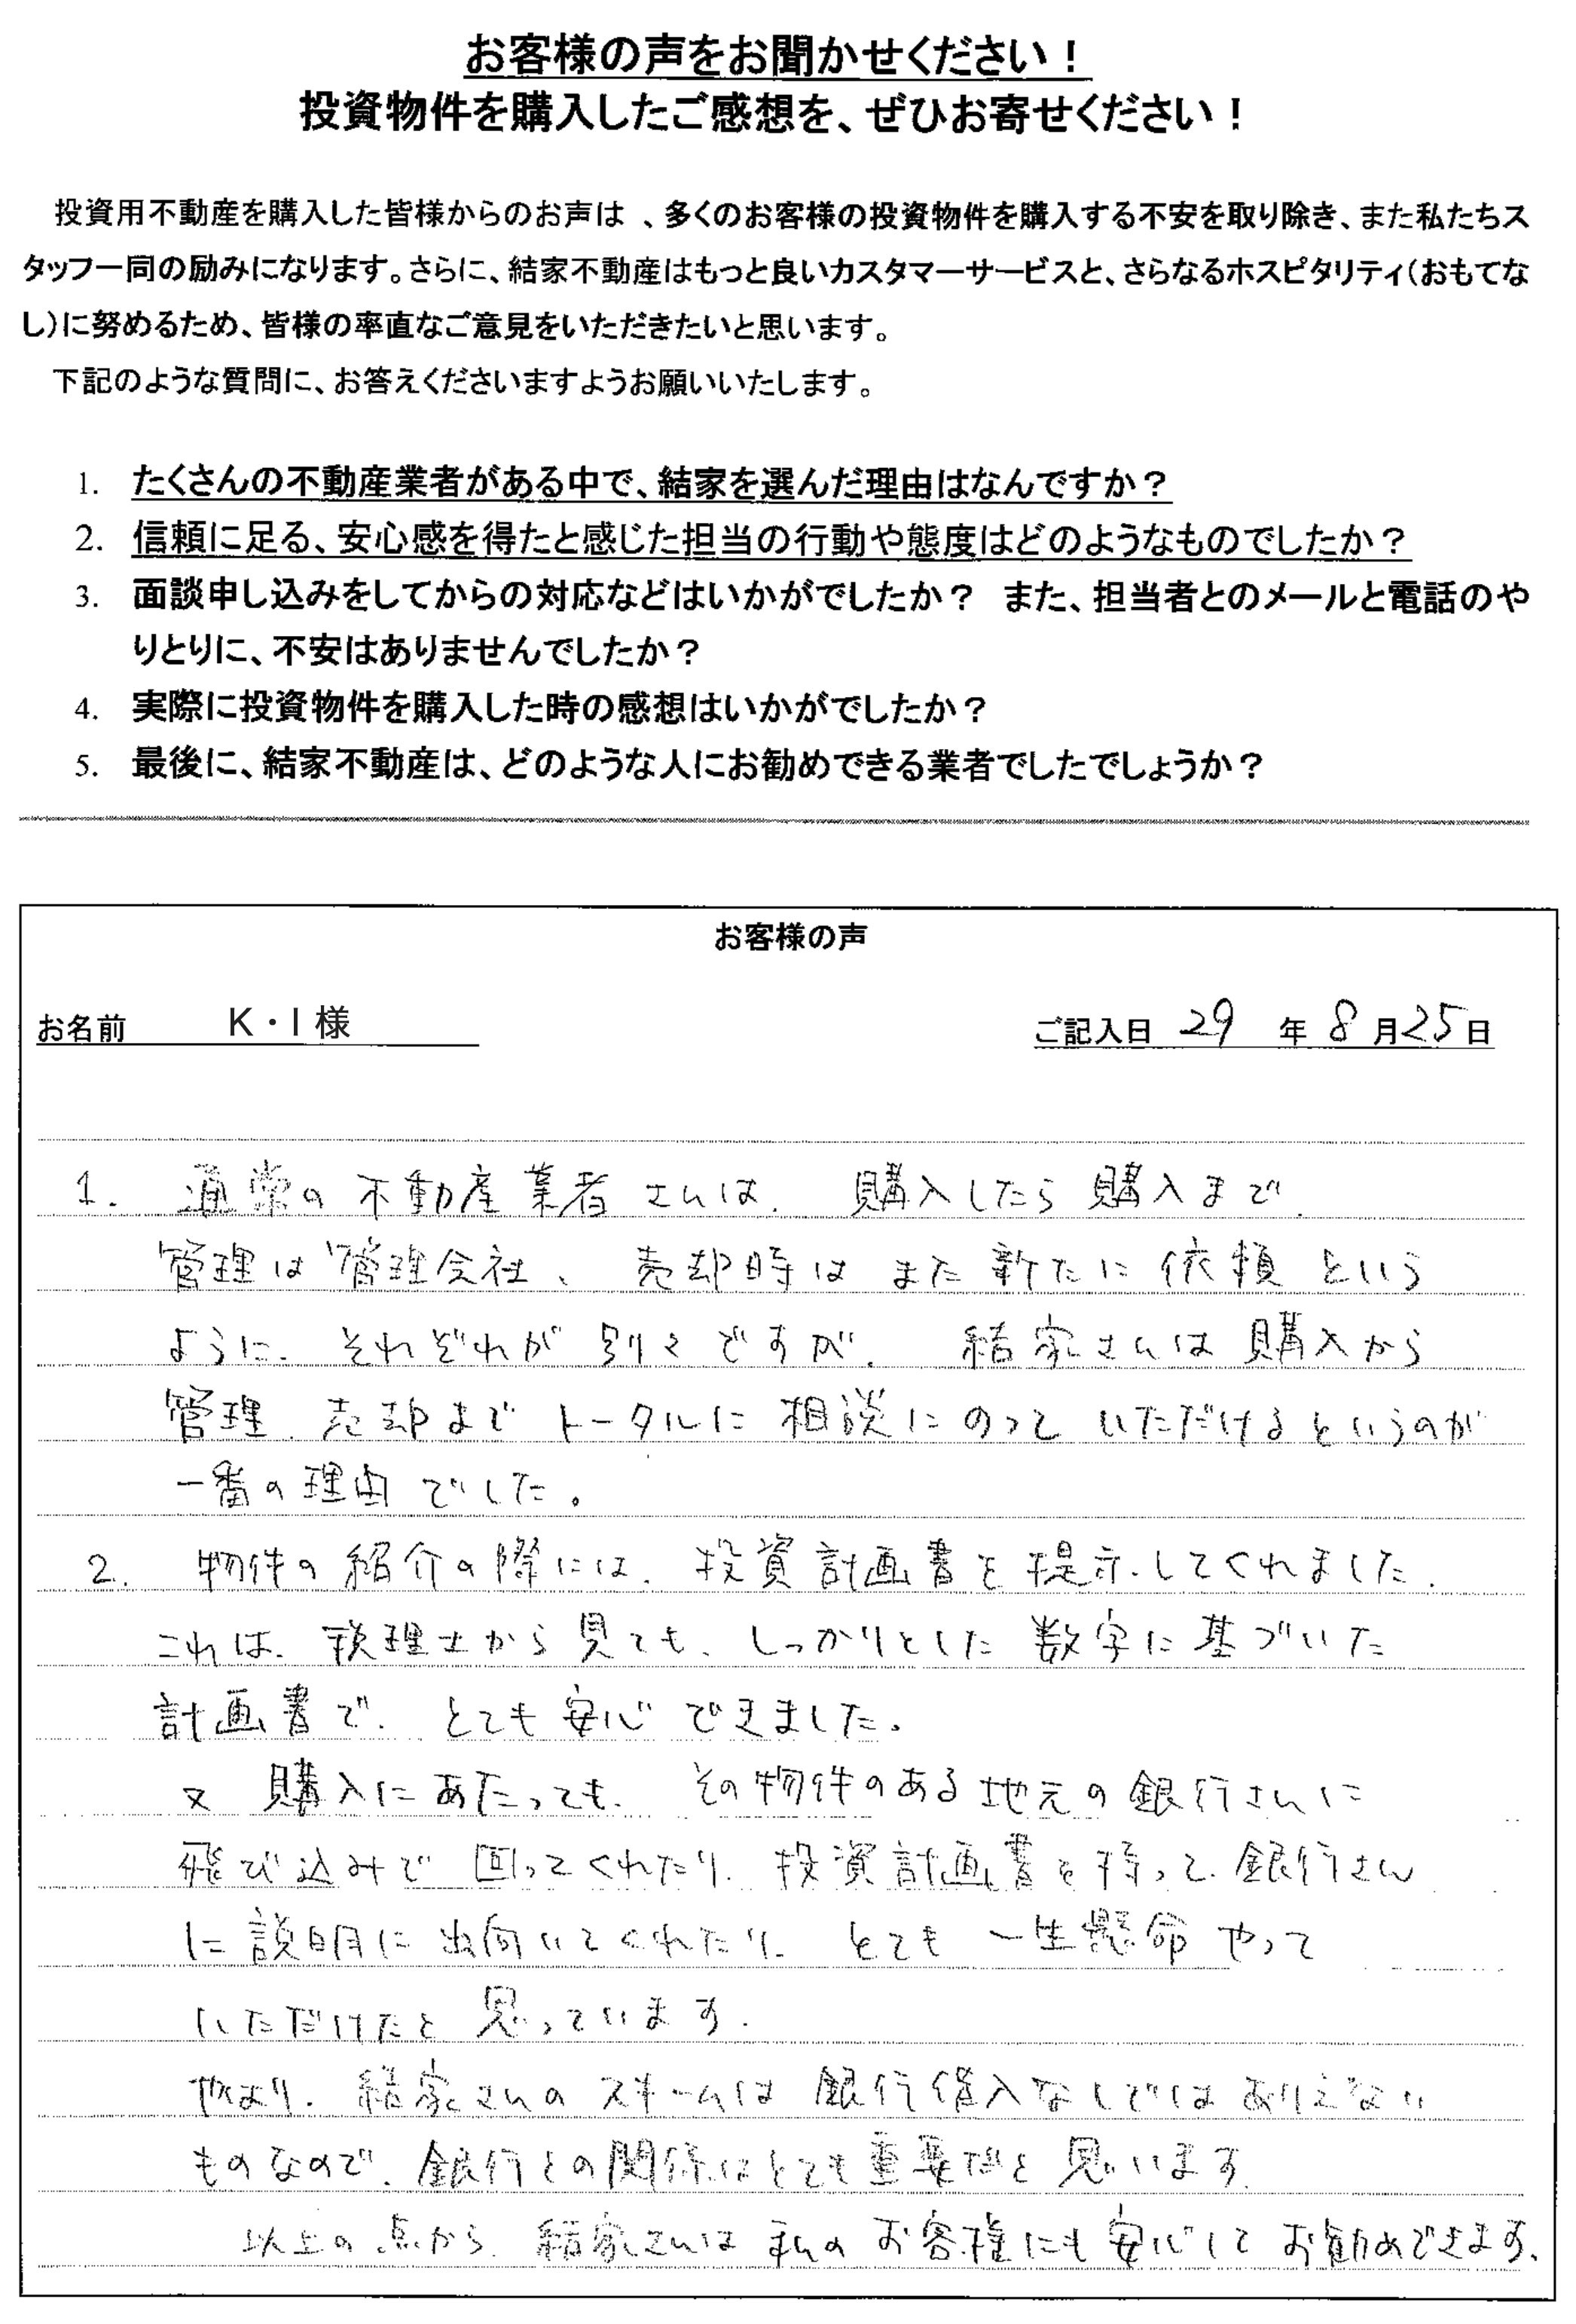 お客様の声をお聞かせください！
投資物件を購入したご感想を、ぜひお寄せください！
投資用不動産を購入した皆様からのお声は 、多くのお客様の投資物件を購入する不安を取り除き、また私たちス
タッフ一同の励みになります。さらに、結家不動産はもっと良いカスタマーサービスと、さらなるホスピタリティ（おもてな
し）に努めるため、皆様の率直なご意見をいただきたいと思います。
下記のような質問に、お答えくださいますようお願いいたします。
1. たくさんの不動産業者がある中で、結家を選んだ理由はなんですか？
2. 信頼に足る、安心感を得たと感じた担当の行動や態度はどのようなものでしたか？
3. 面談申し込みをしてからの対応などはいかがでしたか？ また、担当者とのメールと電話のや
りとりに、不安はありませんでしたか？
4. 実際に投資物件を購入した時の感想はいかがでしたか？
5. 最後に、結家不動産は、どのような人にお勧めできる業者でしたでしょうか？
お客様の声
お名前 K・I 様 ご記入日 29 年 8 月 25 日
1. 通常の不動産業者さんは、購入したら購入まで、
管理は管理会社、売却時はまた新たに依頼という
ように、それぞれが別々ですが、結家さんは購入から
管理、売却までトータルに相談にのっていただけるというのが
一番の理由でした。
2. 物件の紹介の際には、投資計画書を提示してくれました。
これは、税理士から見ても、しっかりとした数字に基づいた
計画書で、とても安心できました。
又 購入にあたっても、その物件のある地元の銀行さんに
飛び込みで回ってくれたり、投資計画書を持って、銀行さん
に説明に出向いてくれたり、とても一生懸命やって
いただけたと思っています。
やはり、結家さんのスキームは銀行借入なしではありえない
ものなので、銀行との関係はとても重要だと思います。
以上の点から、結家さんは私のお客様にも安心してお勧めできます。